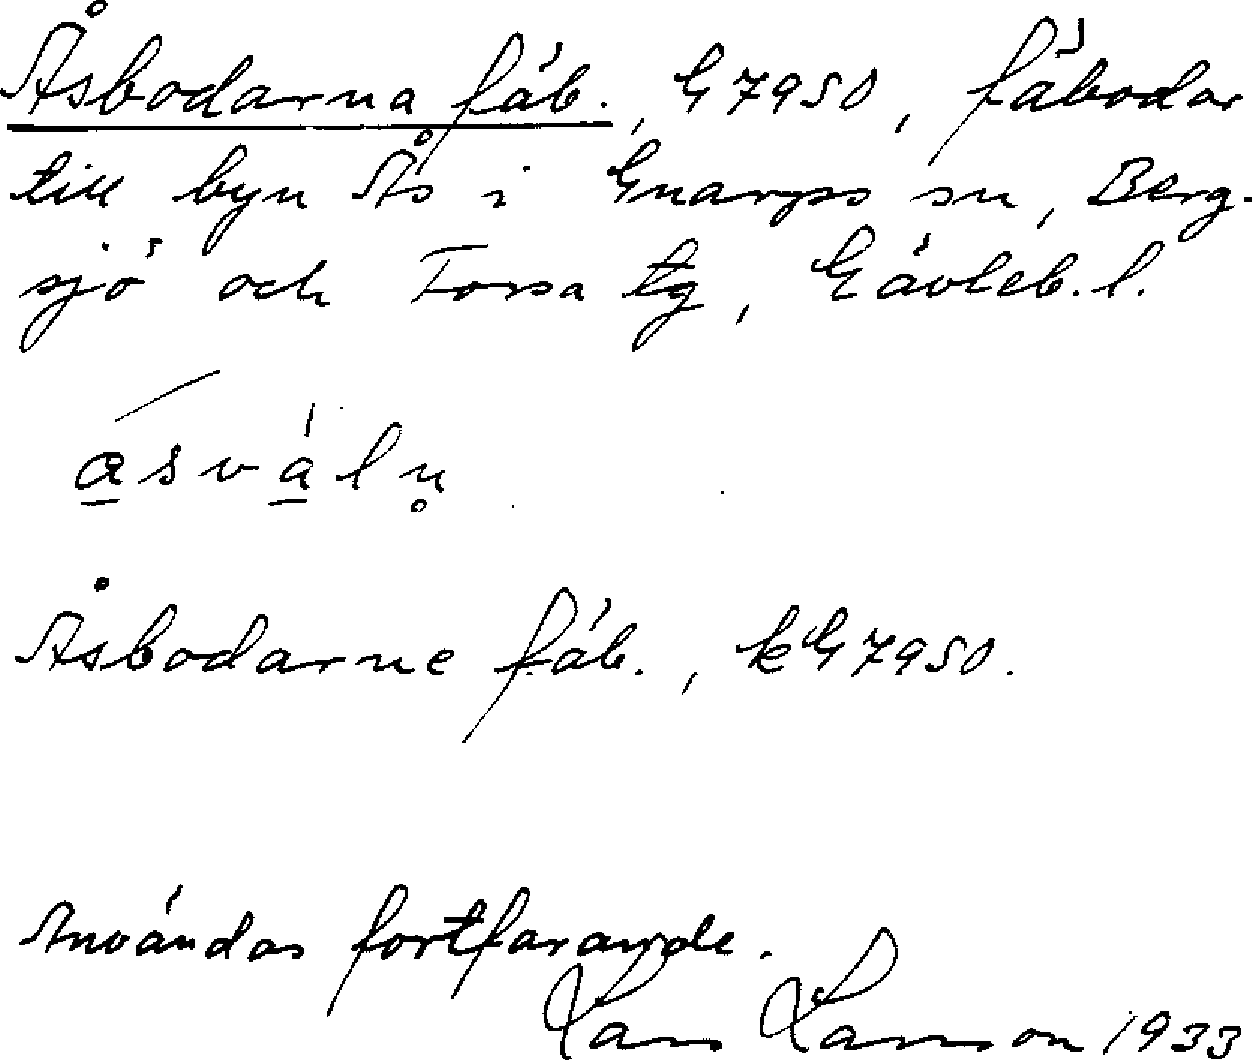 Åsbodarna fäb., G 7950, fäbodar
till byn Ås i Gnarps sn, Berg-
sjö och Forsa tg, Gävleb. l.
Åsbodarne fäb., kG 7950.
Användas fortfarande.
Lars Larsson 1933